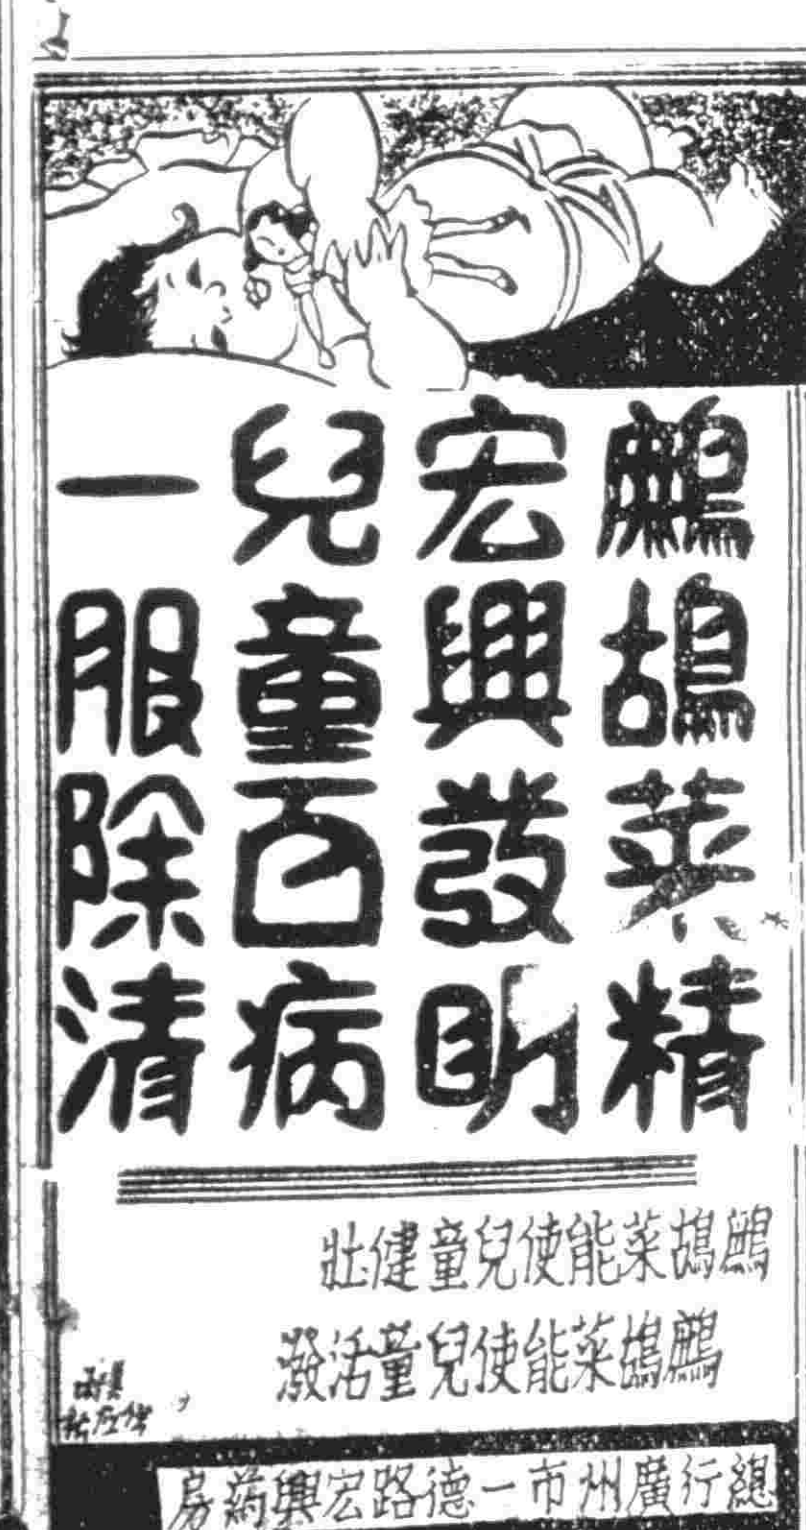 鷓鴣菜精
宏興發明
兒童百病
一服除清
鷓鴣菜能使兒童健壯
鷓鴣菜能使兒童活潑
總行廣州市一德路宏興葯房